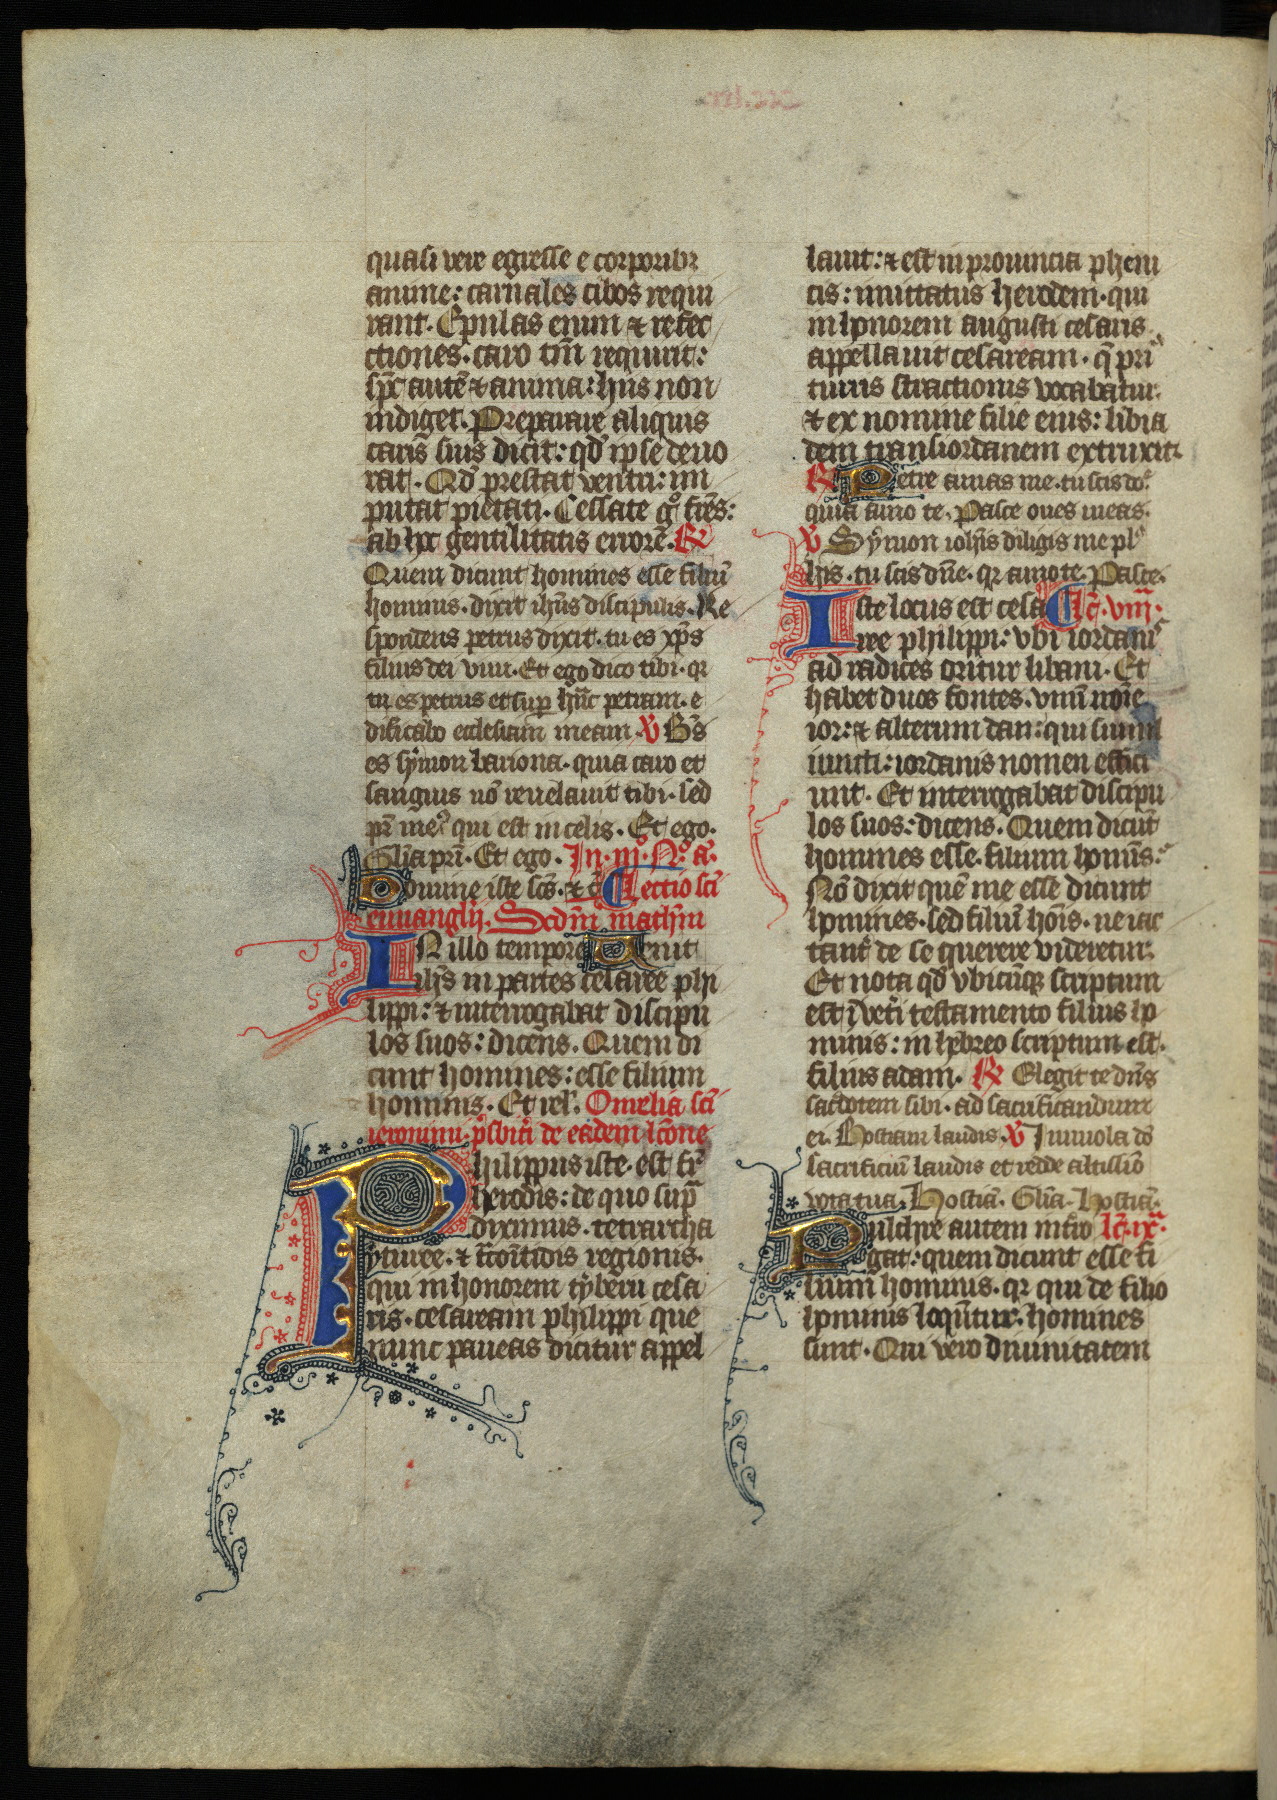 quasi vere egresse e corporibꝫ
anime: carnales cibos requi
rant. Epulas enim ⁊ refec
ctiones. caro tm̄ requirit:
sp̄c autē ⁊ anima: hijs non
indiget. Preparare aliquis
caris suis dicit: qd̄ ipse deuo
rat. Qd̄ prestat ventri: im
putat pietati. Cessate gͦ fr̄es:
ab hac gentilitatis errorē. R̄
Quem dicunt homines esse filiū
hominis. dixit ih̄us discipulis. Re
spondens petrus dixit. tu es xp̄s
filius dei viui. Et ego dico tibi. qꝛ
tu es petrus et sup hāc petram. e
dificabo ecclesiam meam. V̄ Bt̄s
es symon bariona. quia caro et
sanguis nō reuelauit tibi. sed
pr̄ meꝰ qui est in celis. Et ego.
Gl̄ia pri. Et ego. In. iijͦ. Nͦ. a̅.
Domine iste scs̄. ⁊ c̄ Lectio sc̄i
euuanglij. Scdm̄ mathm̄
IN illo tempore Uenit
ih̄s in partes cesaree phi
lippi: ⁊ interrogabat discipu
los suos: dicens. Quem di
cunt homines: esse filium
hominis. Et rel̄. Omelia sc̄i
ieronimi. psbiti de eadem lc̄one
Philippus iste. est fr̄
herodis: de quo sup̄
diximus. tetrarcha
yturee. ⁊ traconitidis regionis.
qui in honorem tyberij cesa
ris. cesaream philippi que
nunc paneas dicitur appel
lauit: ⁊ est in prouincia pheni
cis: imittatus herodem. qui
in honorem augusti cesaris
appellauit cesaream. q̄ priꝰ
turris stractionis vocabatur.
⁊ ex nomine filie eius: libia
dem transiordanem extruxit.
R̄ Petre amas me. tu scis dn̄e
quia amo te. Pasce oues meas.
V̄ Symon ioh̄is diligis me plꝰ
hijs. tu scis dn̄e. qꝛ amo te. Pasce.
Iste locus est cesa Lc̄. viij.
ree philippi: vbi iordanis
ad radices oritur libani. Et
habet duos fontes. vnū noīe
ior: ⁊ alterum dan: qui simul
iuncti: iordanis nomen effici
unt. Et interrogabat discipu
los suos: dicens. Quem dicūt
homines esse. filium homīs:
Nō dixit quē me esse dicunt
homines. sed filiū hoīs. ne iac
tanter de se querere videretur.
Et nota qd̄ vbicūqꝫ scriptum
est ī vetri testamento filius ho
minis: in hebreo scriptum est.
filius adam. R̄ Elegit te dn̄s
sacdotem sibi. ad sacrificandum
ei. Hostiam laudis. V̄ Immola dō
sacrificiū laudis et redde altissiō
vota tua. Hostiā. Gl̄ia. Hostiā.
Pulchre autem intro Lc̄. ix.
gat: quem dicunt esse fi
lium hominis. qꝛ qui de filio
hominis loquūtur. homines
sunt. Qui vero diuinitatem